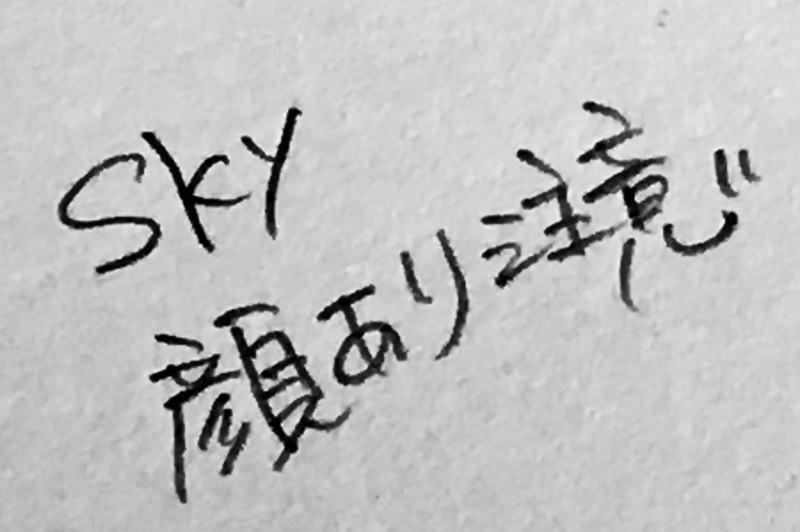 SKY
顔あり注意